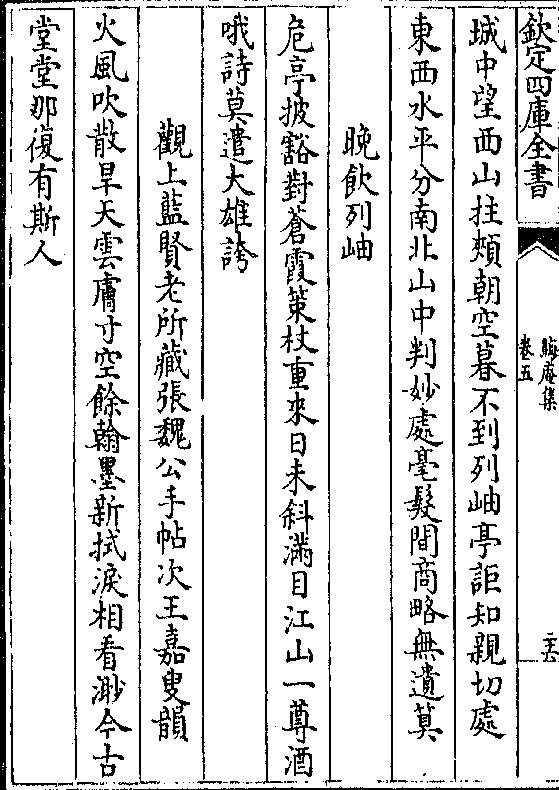 欽定四庫全書
晦庵集
卷五
二十六
城中望西山拄頰朝空暮不到列岫亭詎知親切處
東西水平分南北山中判妙處毫髮間商略無遺算
晚飲列岫
危亭披豁對蒼霞策杖重來日未斜滿目江山一尊酒
哦詩莫遣大雄誇
觀上藍賢老所藏張魏公手帖次王嘉叟韻
火風吹散旱天雲膚寸空餘翰墨新拭淚相看渺今古
堂堂那復有斯人